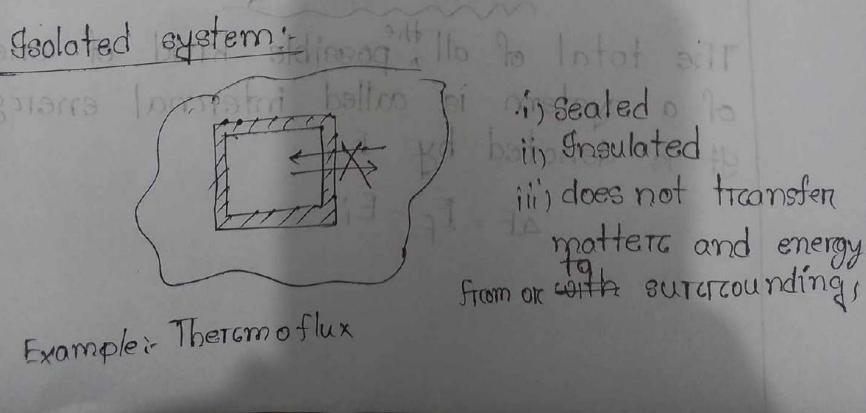 Isolated system:-
i) Sealed
ii) Insulated
iii) does not transfer
matter and energy
from or to surroundings,
Example:- Thermoflux